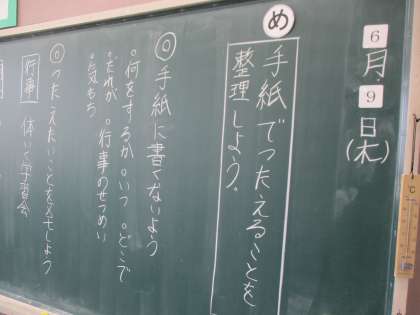 6月9日(木)
め
手紙でつたえることを
整理しよう。
◎手紙に書くないよう
。何をするか。いつ。どこで
。だれが 。行事のせつめい
。気もち
◎つたえたいことをメモしよう
行事 体いく学習会
℃